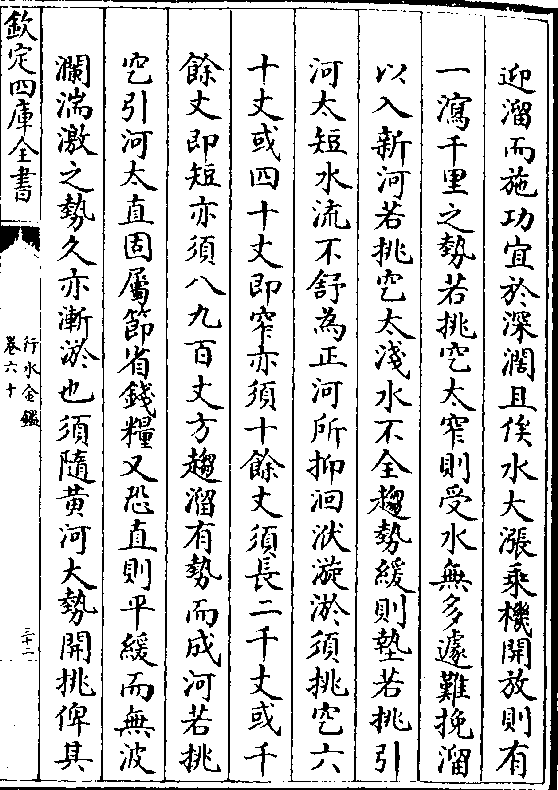 迎溜而施功宜於深濶且俟水大漲乘機開放則有
一瀉千里之勢若挑穵太窄則受水無多遽難挽溜
以入新河若挑穵太淺水不全趨勢緩則墊若挑引
河太短水流不舒為正河所抑洄洑漩淤須挑穵六
十丈或四十丈即窄亦須十餘丈須長二千丈或千
餘丈即短亦須八九百丈方趨溜有勢而成河若挑
穵引河太直固屬節省錢糧又恐直則平緩而無波
瀾湍激之勢久亦漸淤也須隨黄河大勢開挑俾其
欽定四庫全書
行水金鑑
卷六十
三十二